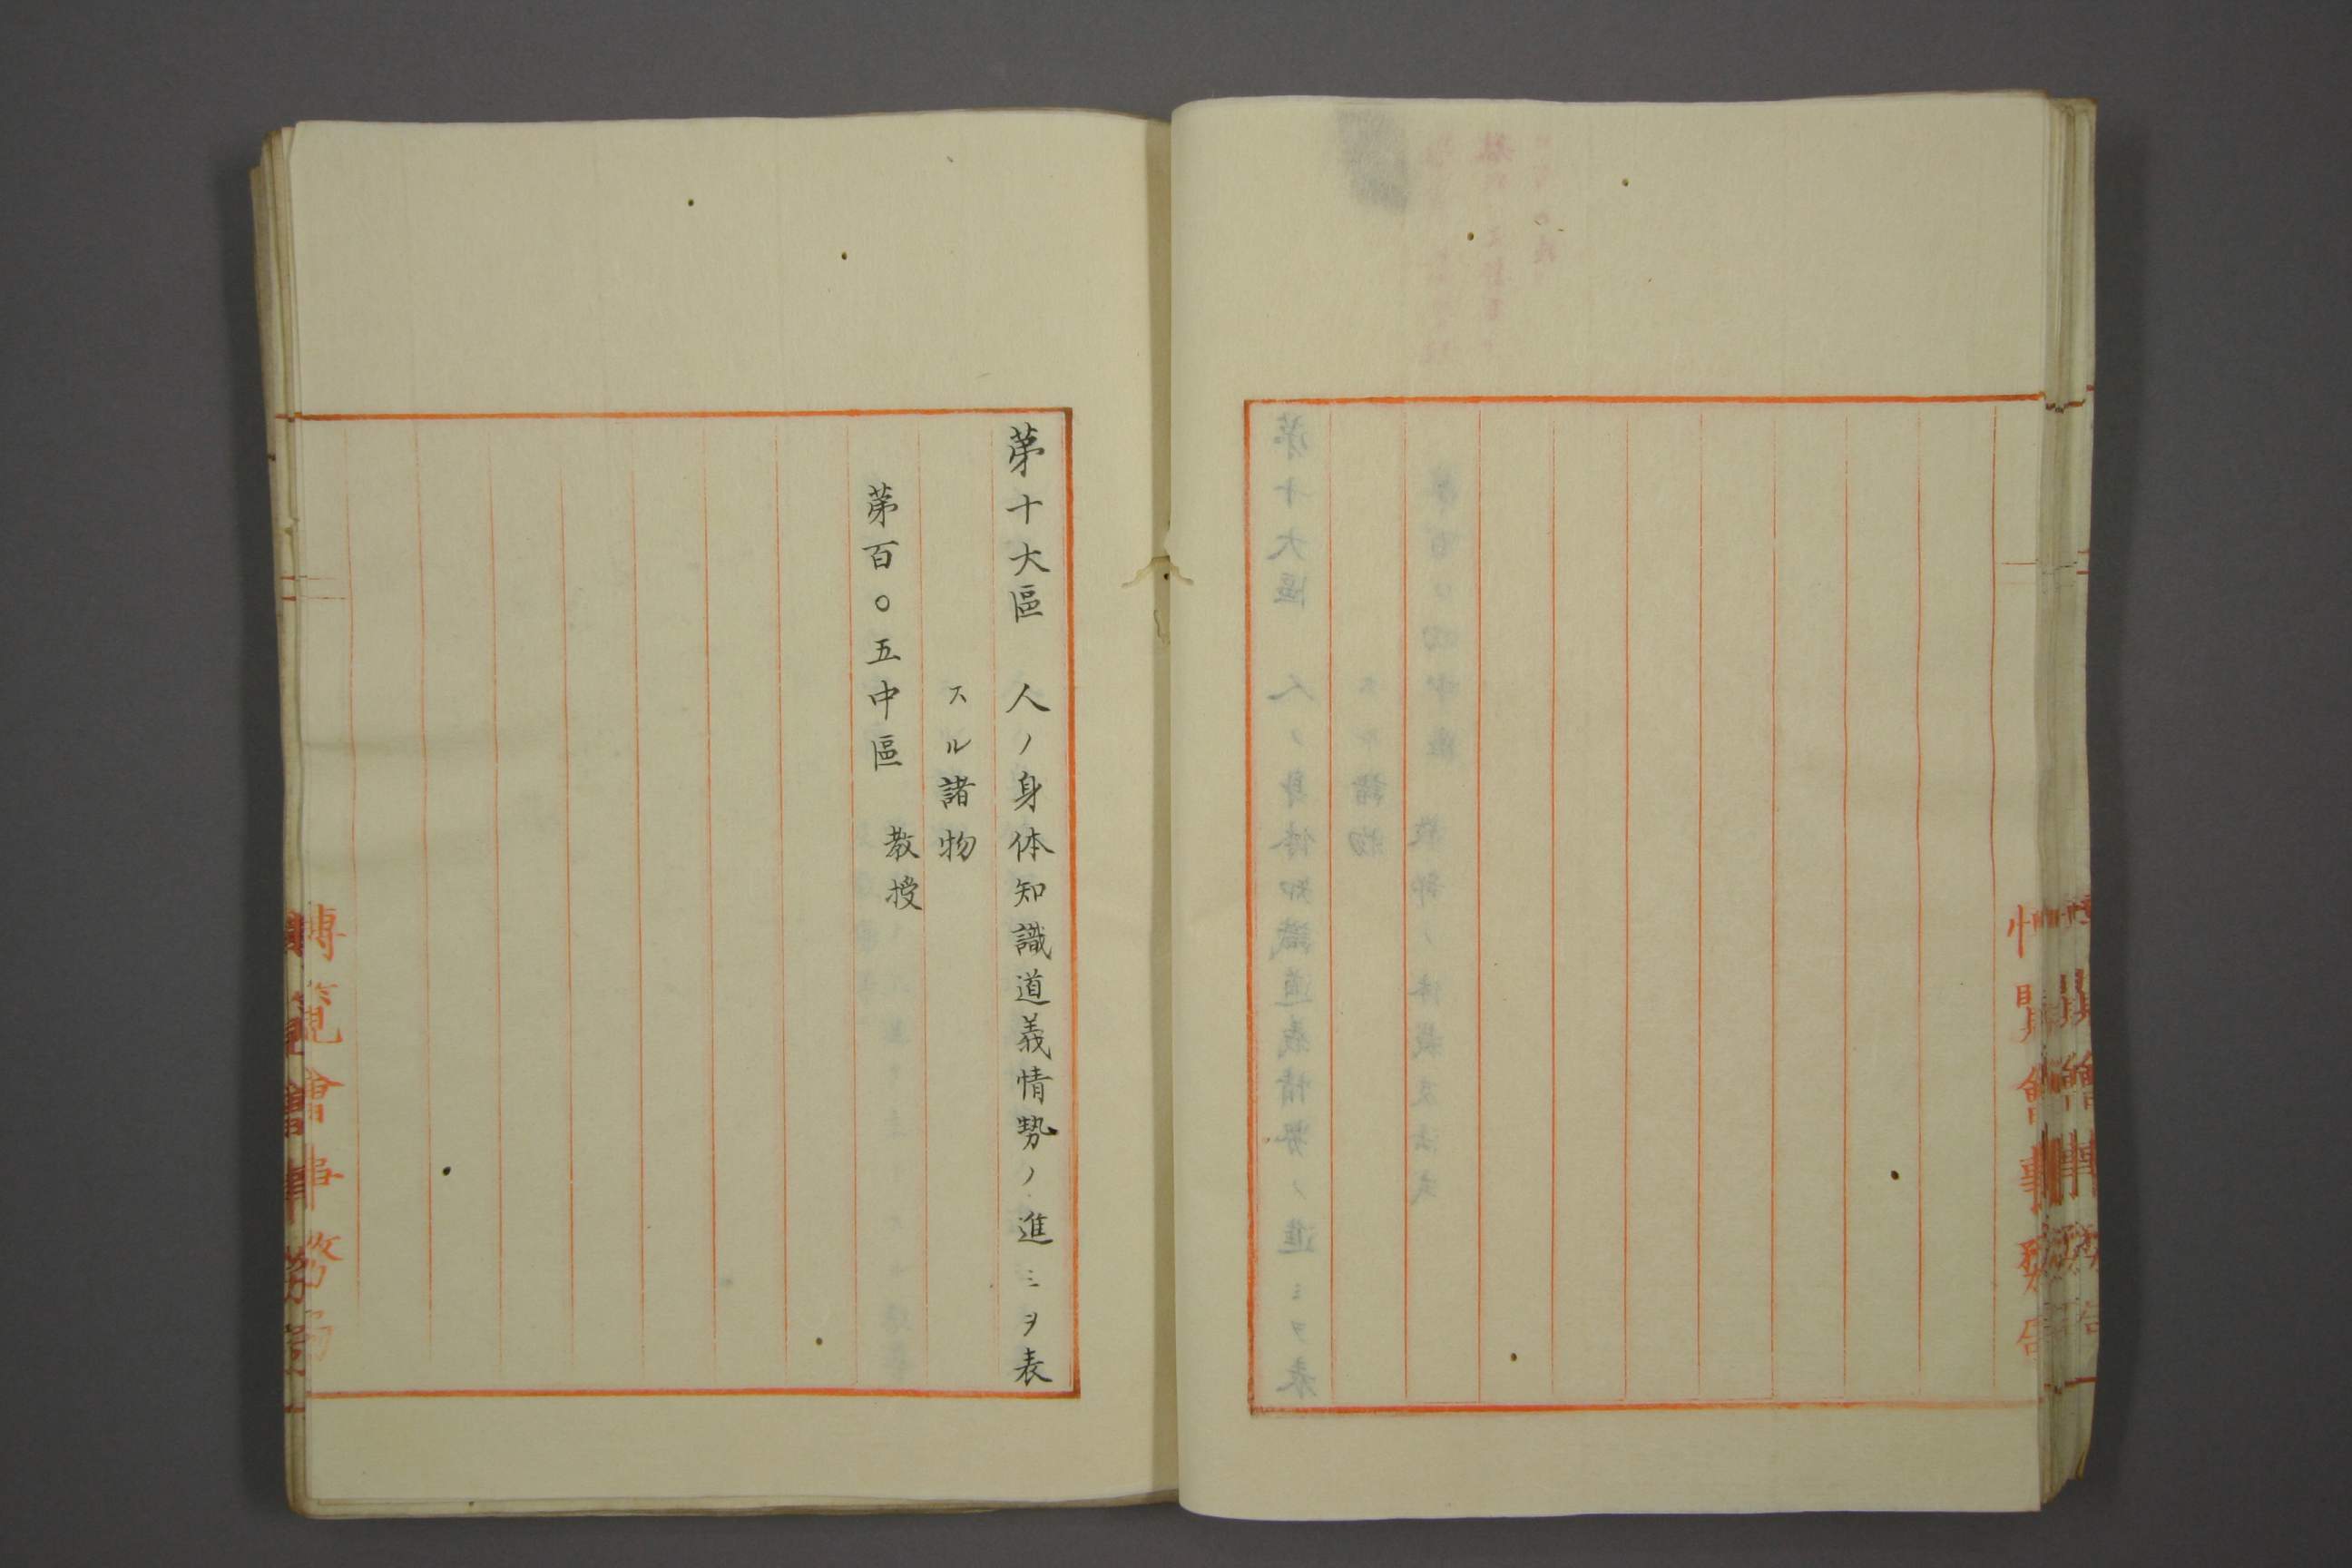 第十大區　人ノ身体知識道義情勢ノ進ミヲ表
スル諸物
第百〇五中區　教授
博覧會事務局